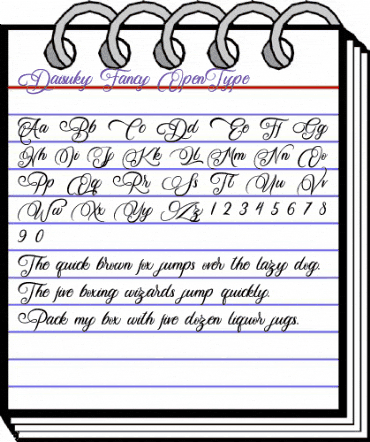 Daisuky Fancy OpenType
Aa Bb Cc Dd Ee Ff Gg
Hh Ii Jj Kk Ll Mm Nn Oo
Pp Qq Rr Ss Tt Uu Vv
Ww Xx Yy Zz 1 2 3 4 5 6 7 8
9 0
The quick brown fox jumps over the lazy dog.
The five boxing wizards jump quickly.
Pack my box with five dozen liquor jugs.